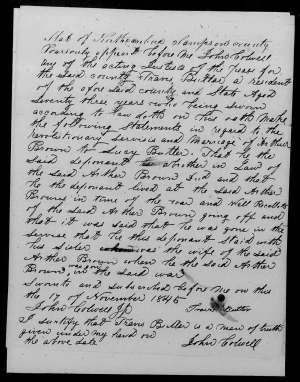 Stat of North carolina Sampson county
Personly appeard before me John Colwell
one of the acting Justices of the Peas for
the said county Travis Butler a resident
of the afore said county and State Aged
Seventy three years who being Sworn
according to law doth on this oath Make
the following Statements in regard to the
Revolutionary Servis and Marriage of Arther
Brown to Lucy Butler. That he the
said deponant brother in Law of
the Said Arther Brown Jnd and that
he the deponant lived at the said Arther
Browns in time of the war and Well Recollects
of the said Arther Brown going off and
that it was said that he was gone in the
Service that he this deponant Staid with
his Sister was the wife of the said
Arther Brown when he the Said Arther
Brown in the said war
Swornto and subscribed before me on this
the 17 of November 1845
John Colwell JP Travis Butler
I certify that Travis Butler is a man of truth
given under my hand on
the above date John Colwell